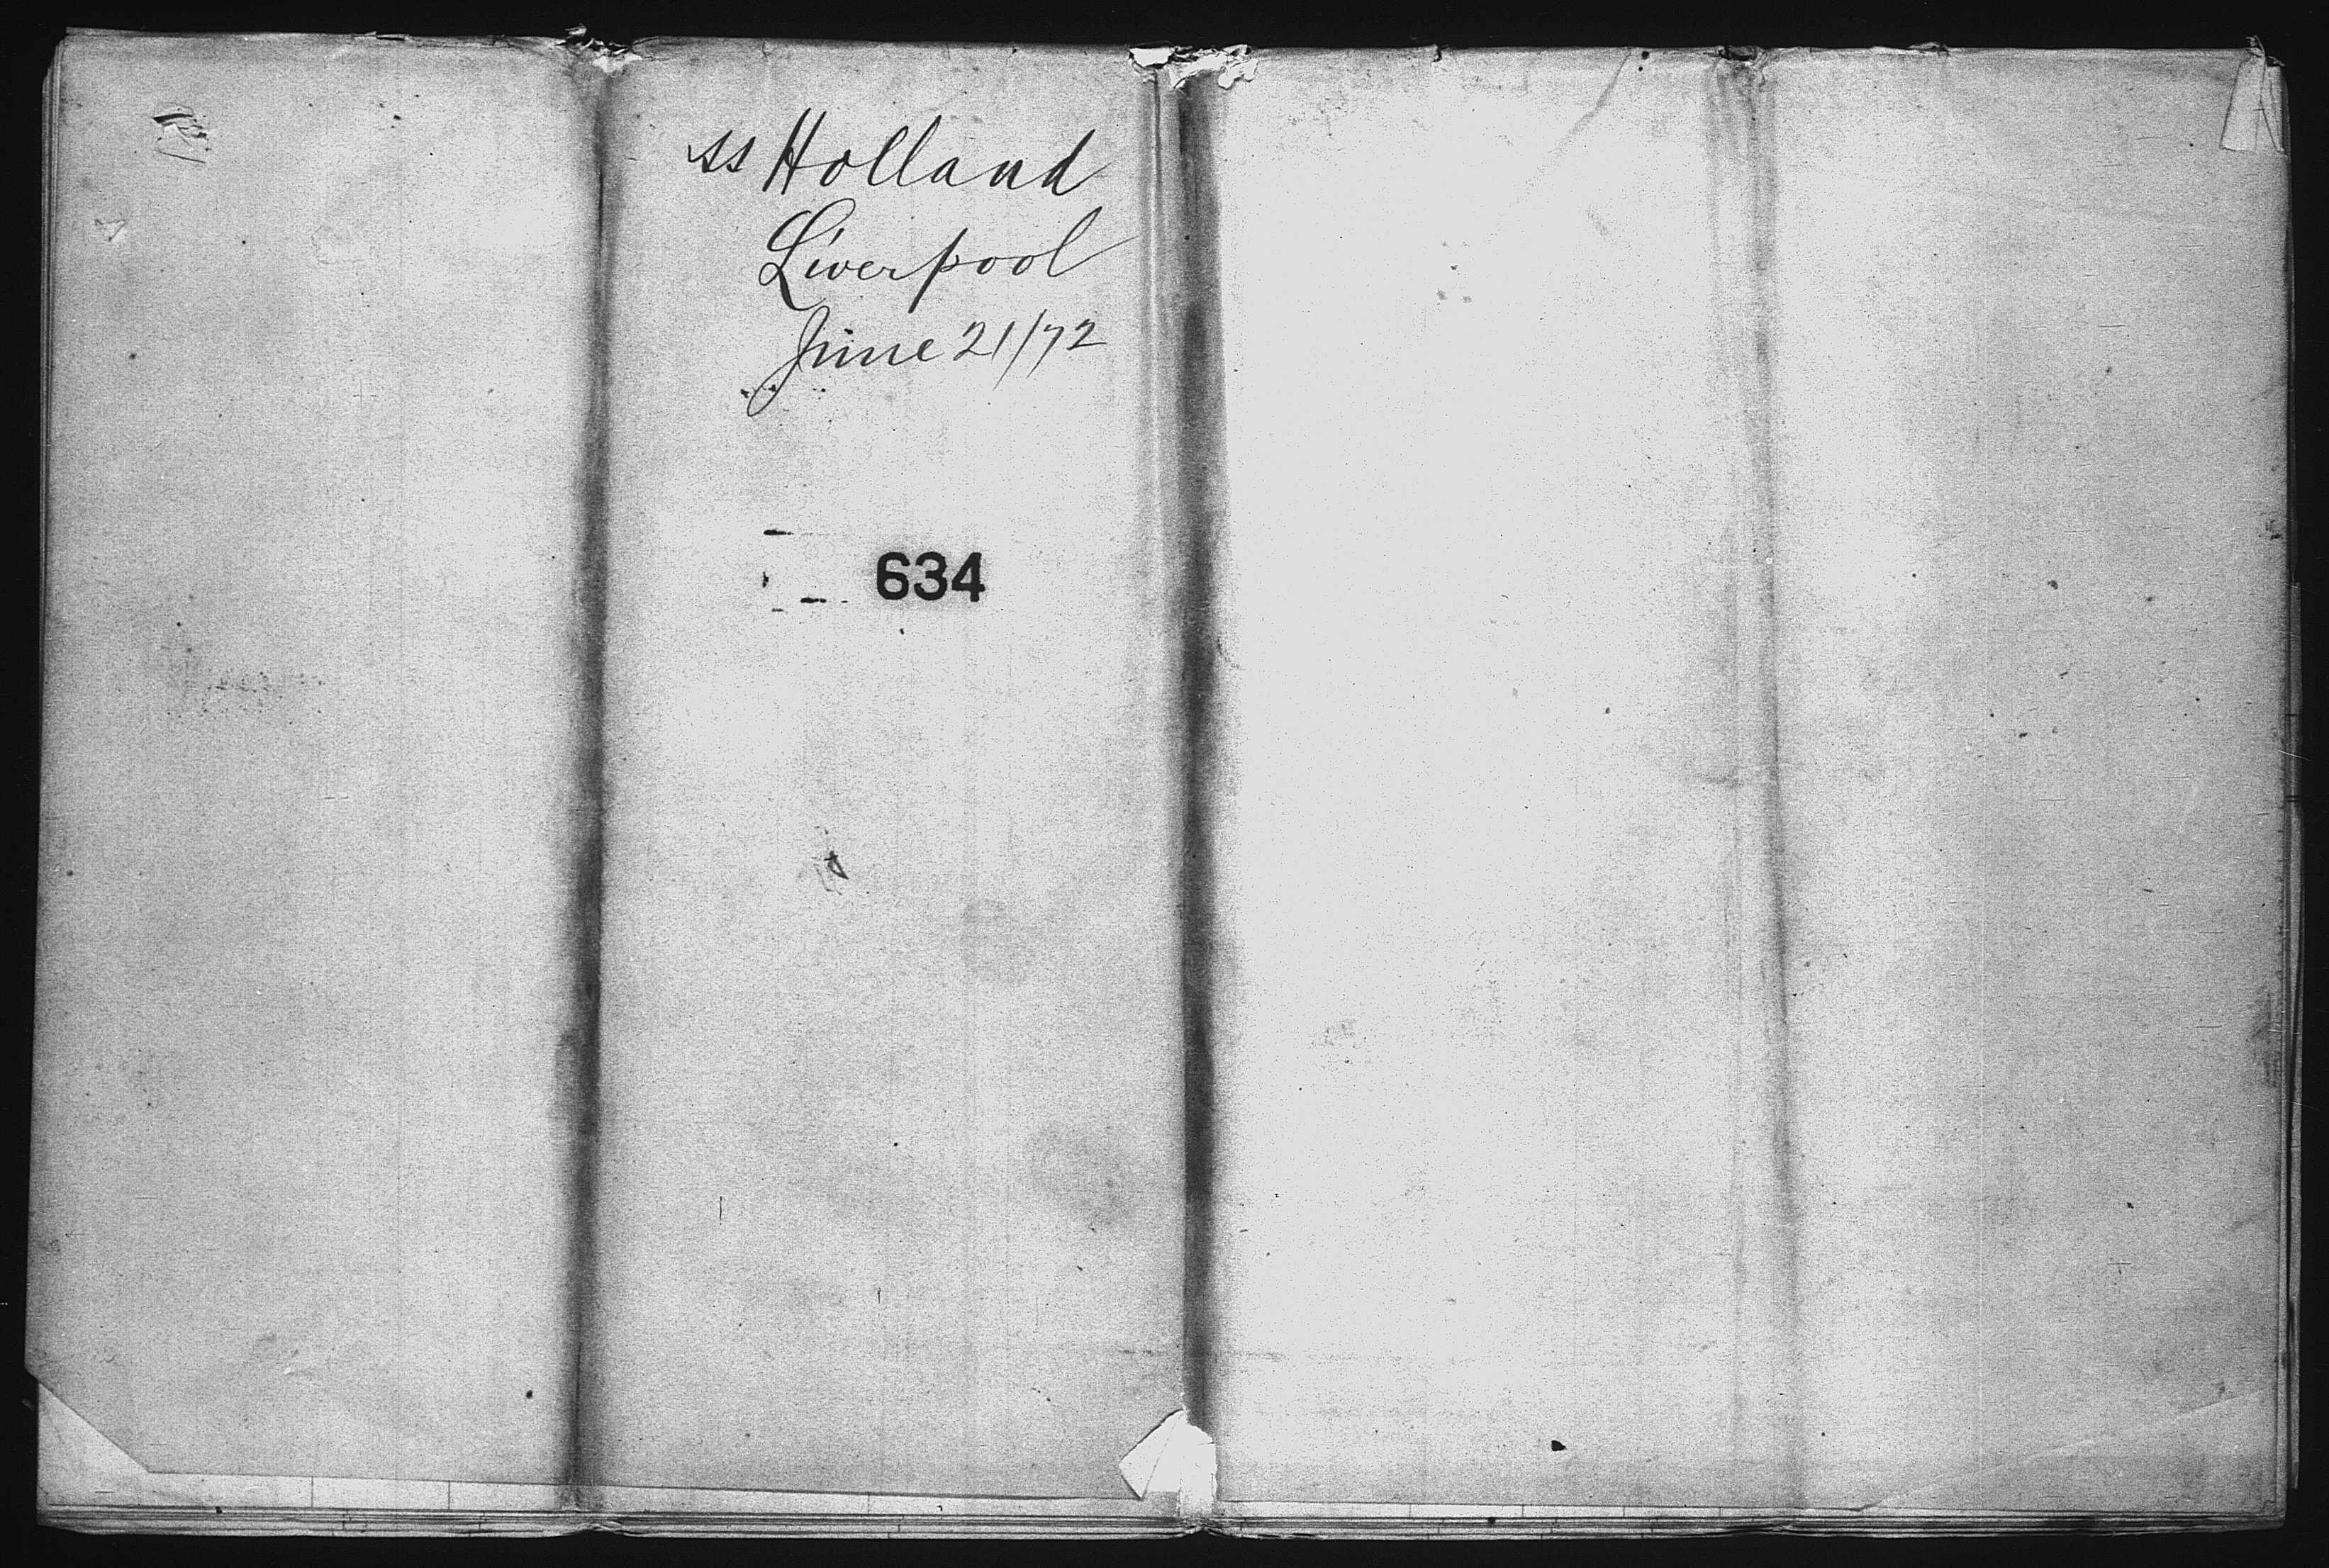 ss Holland
Liverpool
June 21/72
634